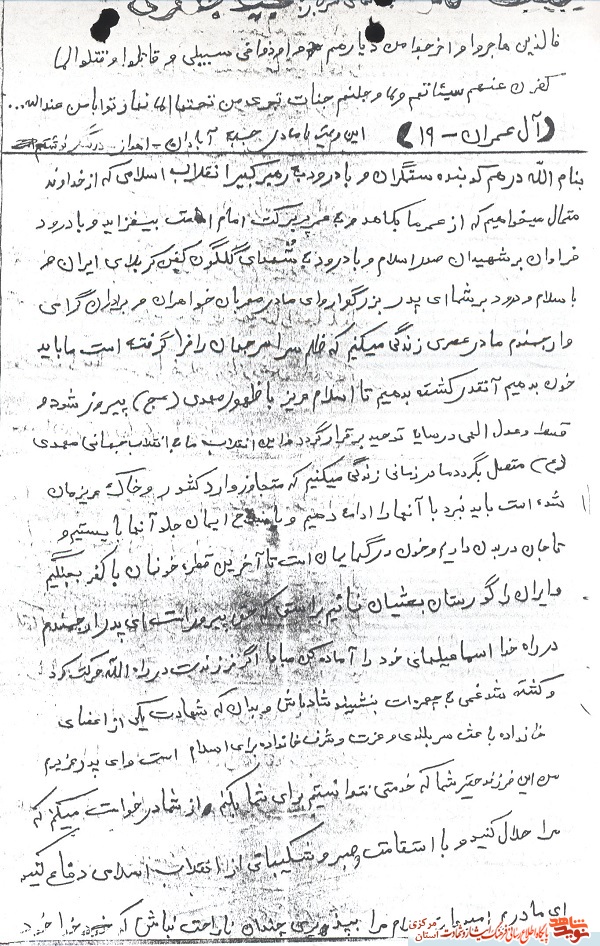 فالذین هاجروا و اخرجوا من دیارهم و اوذوا فی سبیلی و قاتلوا و قتلوا لا
کفرن عنهم سیئاتهم و لادخلنهم جنات تجری من تحتها الانهار ثوابا من عندالله...
(آل عمران - ۱۹) این وصیت را مادی جبهه آبادان - اهواز
بنام الله درهم کوبنده ستمگران و با درود به رهبر کبیر انقلاب اسلامی که از خداوند
متعال میخواهیم که از عمر ما بکاهد و به عمر پربرکت امام امت بیفزاید و با درود
فراوان بر شهیدان صدر اسلام و با درود به شهدای گلگون کفن کربلای ایران و
با سلام و درود بر شما ای پدر بزرگوار و ای مادر مهربان خواهران و برادران گرامی
و ارجمندم ما در عصری زندگی میکنیم که ظلم سراسر جهان را فرا گرفته است ما باید
خون بدهیم آنقدر کشته بدهیم تا اسلام عزیز با ظهور مهدی (عج) پیروز شود و
قسط و عدل الهی در سایه توحید برقرار گردد و این انقلاب ما به انقلاب جهانی مهدی
(عج) متصل بگردد ما در زمانی زندگی میکنیم که متجاوز وارد کشور و خاک عزیزمان
شده است باید نبرد با آنها را ادامه دهیم و با سلاح ایمان جلو آنها بایستیم و
تا جان در بدن داریم و خون در رگهایمان است تا آخرین قطره خونمان با کفر بجنگیم
و ایران را گورستان بعثیان نمائیم براستی که حق پیروز است ای پدر ارجمندم
در راه خدا اسماعیلهای خود را آماده کن مبادا اگر فرزندت در راه الله حرکت کرد
و کشته شد غمی به چهره‌ات بنشیند شاد باش و بدان که شهادت یکی از اعضای
خانواده باعث سربلندی و عزت و شرف خانواده برای اسلام است و ای پدر عزیزم
من این فرزند حقیر شما که خدمتی نتوانستم برای شما بکنم از شما درخواست میکنم که
مرا حلال کنید و با استقامت و صبر و شکیبائی از انقلاب اسلامی دفاع کنید
ای مادرم امیدوارم مرا ببخشی چندان ناراحت نباش که خدا خود
نوید شاهد
پایگاه اطلاع رسانی فرهنگ ایثار و شهادت
استان مرکزی